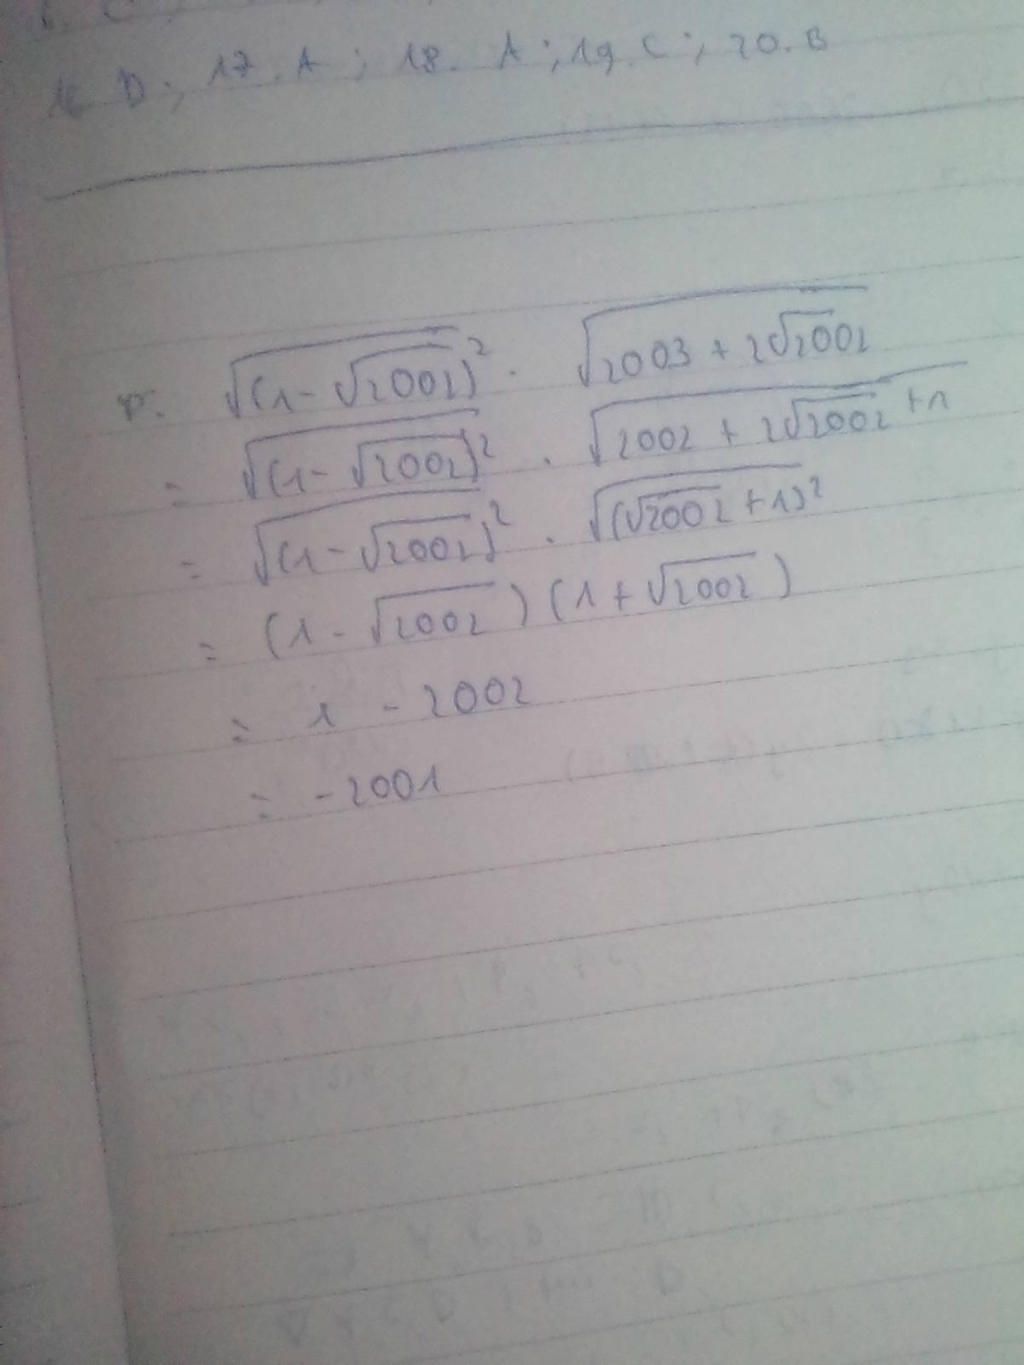 16 D; 17. A; 18. A; 19. C; 20. B
√(1-√2002)² . √2003 + 2√2002
= √(1-√2002)² . √2002 + 2√2002 + 1
= √(1-√2002)² . √(√2002 + 1)²
= (1-√2002)(1+√2002)
= 1 - 2002
= -2001